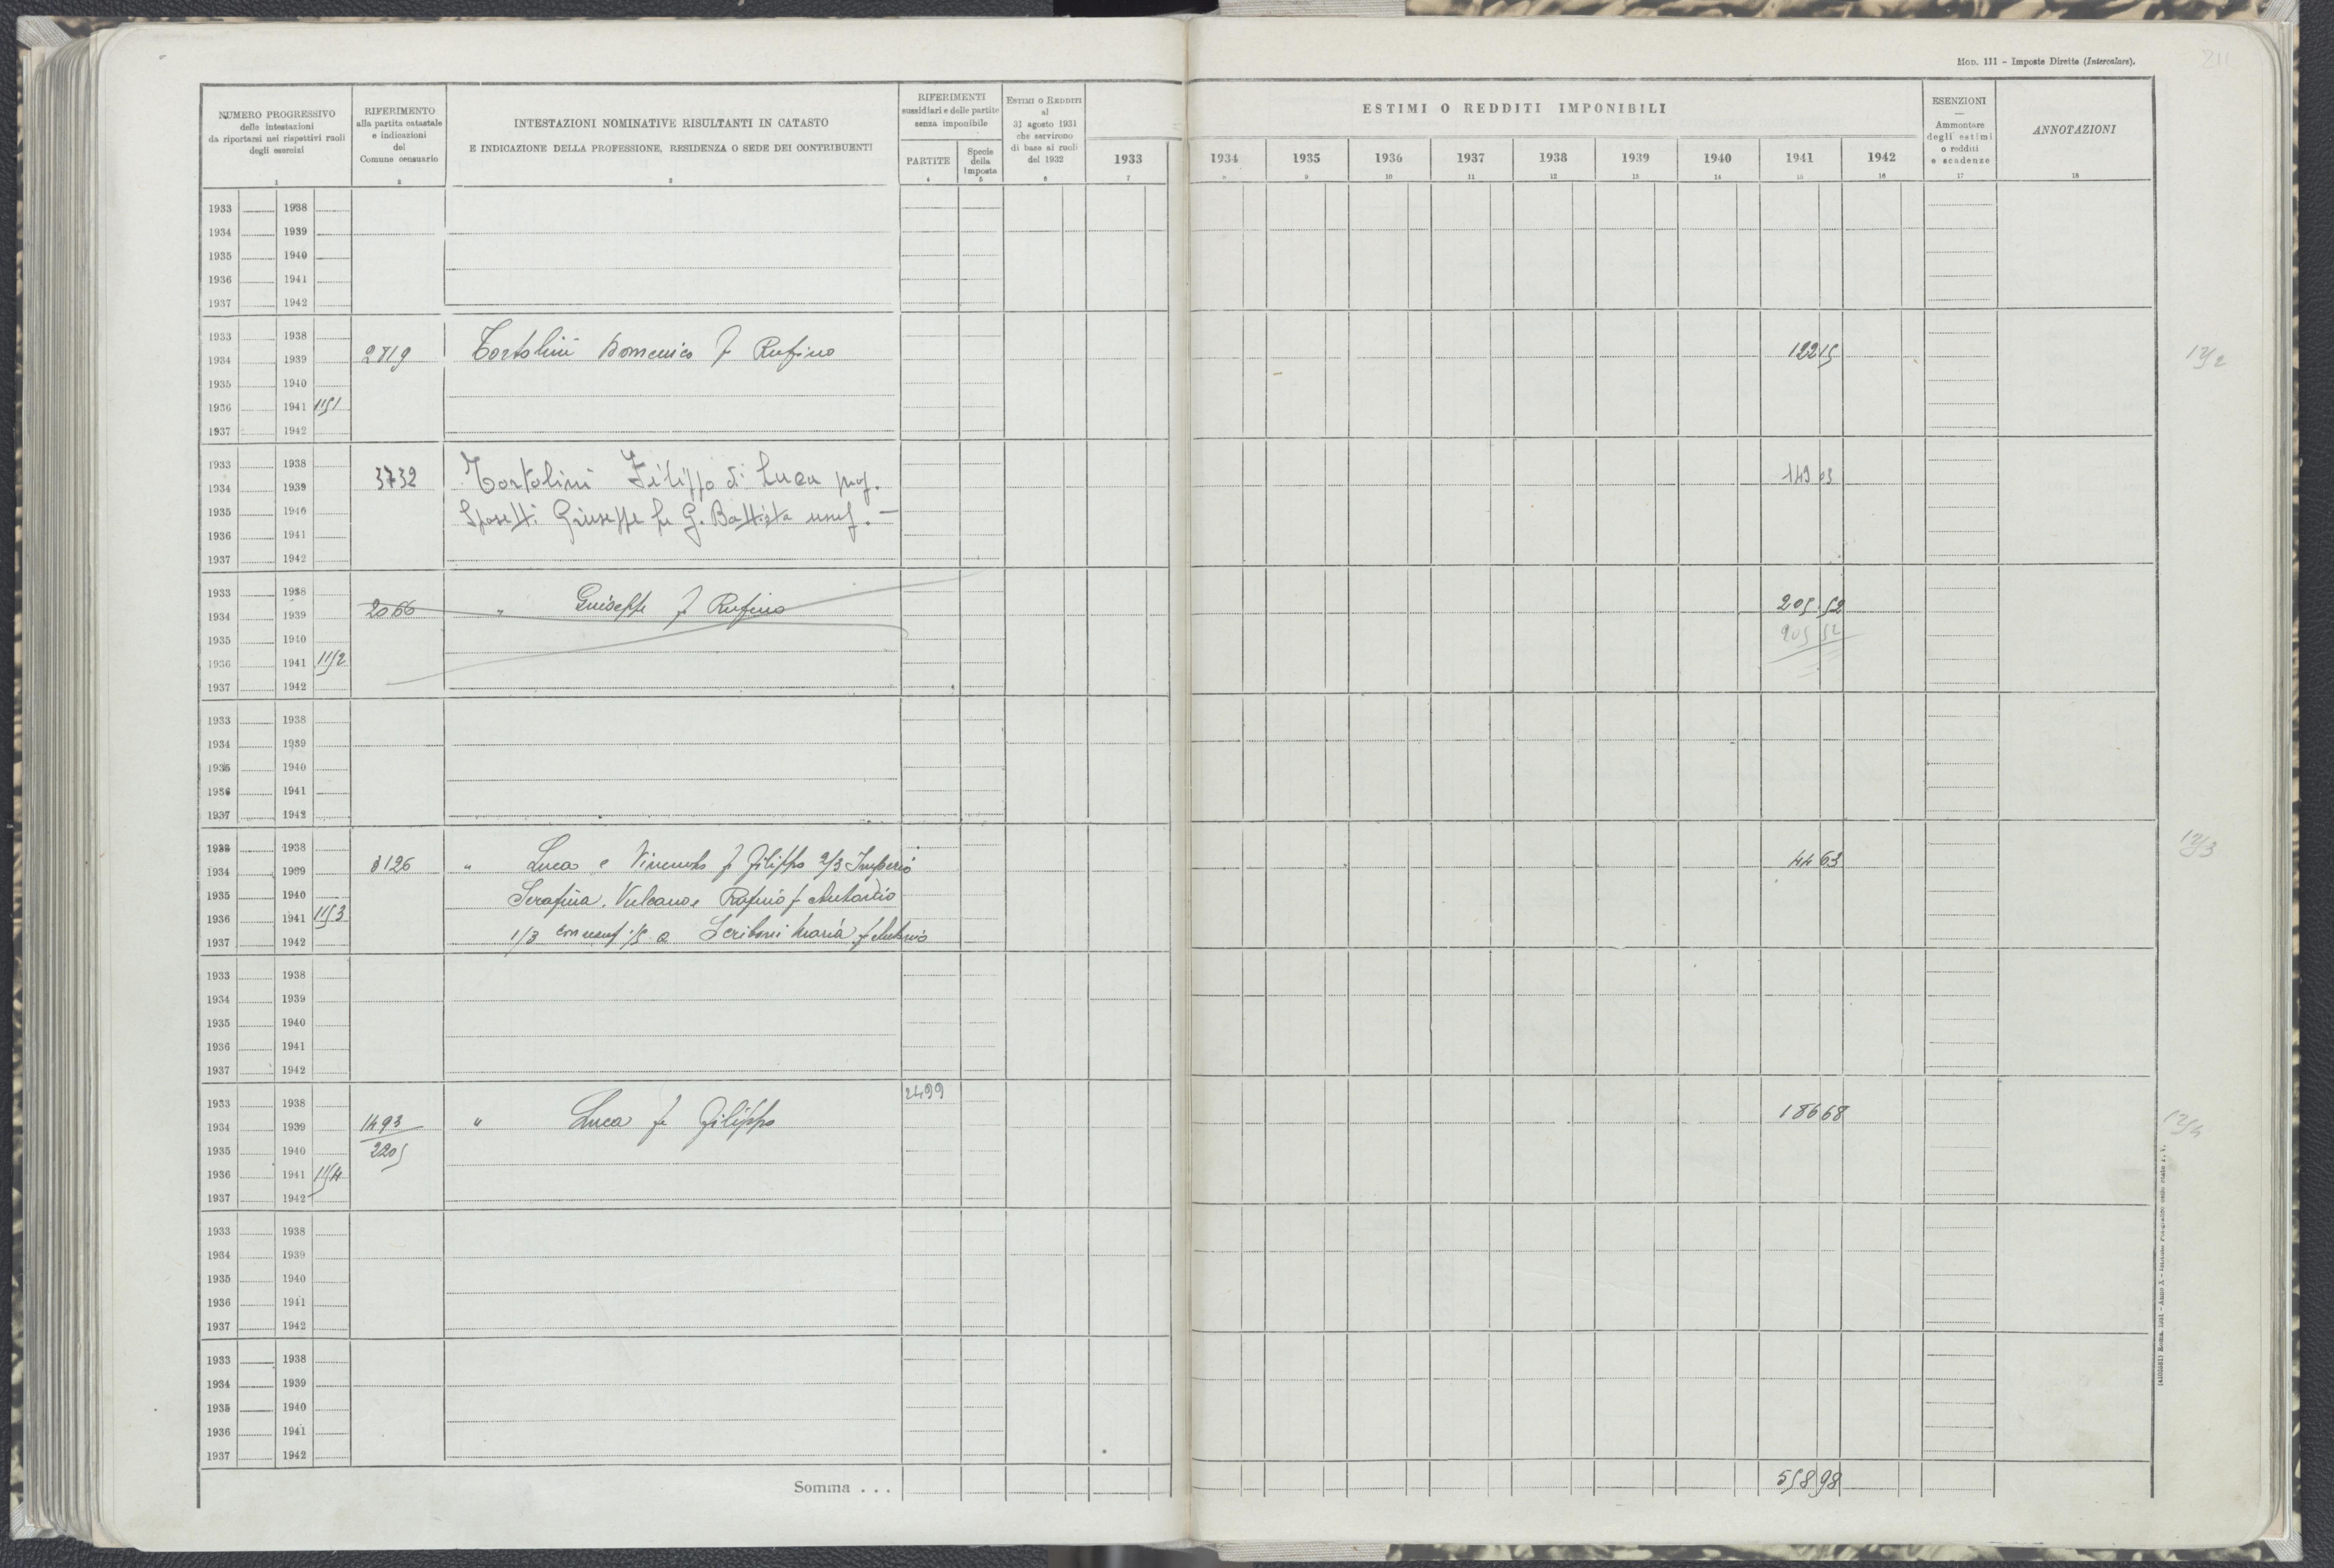 Mod. 111 - Imposte Dirette (Intercalare).
211
NUMERO PROGRESSIVO
delle intestazioni
da riportarsi nei rispettivi ruoli
degli esercizi
1
RIFERIMENTO
alla partita catastale
e indicazioni
del
Comune censuario
2
INTESTAZIONI NOMINATIVE RISULTANTI IN CATASTO
E INDICAZIONE DELLA PROFESSIONE, RESIDENZA O SEDE DEI CONTRIBUENTI
3
RIFERIMENTI
sussidiari e delle partite
senza imponibile
PARTITE
4
Specie
della
Imposta
5
Estimi o Redditi
al
31 agosto 1931
che servirono
di base ai ruoli
del 1932
6
ESTIMI O REDDITI IMPONIBILI
1933 1934 1935 1936 1937 1938 1939 1940 1941 1942
7 8 9 10 11 12 13 14 15 16
ESENZIONI
—
Ammontare
degli estimi
o redditi
e scadenze
17
ANNOTAZIONI
18
1933 1938
1934 1939
1935 1940
1936 1941
1937 1942
1933 1938
1934 1939 2819 Tortolini Domenico f Rufino 122 15 1252
1935 1940
1936 1941 1151
1937 1942
1933 1938
1934 1939 3732 Tortolini Filippo di Luca prop.
149 03
1935 1940 Sposetti Giuseppe fu G. Battista usuf. —
1936 1941
1937 1942
1933 1938
1934 1939 2066 " Guiseppe f Rufino 205.52
1935 1940 205 52
1936 1941 1152
1937 1942
1933 1938
1934 1939
1935 1940
1936 1941
1937 1942
1933 1938
1934 1939 3126 " Luca e Vincenzo f Filippo 2/3 Imperio 44 63 1253
1935 1940 Serafina, Vulcano e Rufino f Antonio
1936 1941 1153
1937 1942 1/3 con usuf a Scriboni Maria f Antonio
1933 1938
1934 1939
1935 1940
1936 1941
1937 1942
1933 1938 2499
1934 1939 1493 " Luca fu Filippo 186 68 1254
1935 1940 2205
1936 1941 1154
1937 1942
1933 1938
1934 1939
1935 1940
1936 1941
1937 1942
1933 1938
1934 1939
1935 1940
1936 1941
1937 1942
Somma . . . 558 98